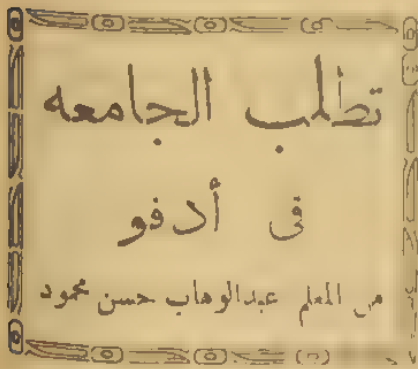 تطلب الجامعه
فى أدفو
من المعلم عبدالوهاب حسن محمود